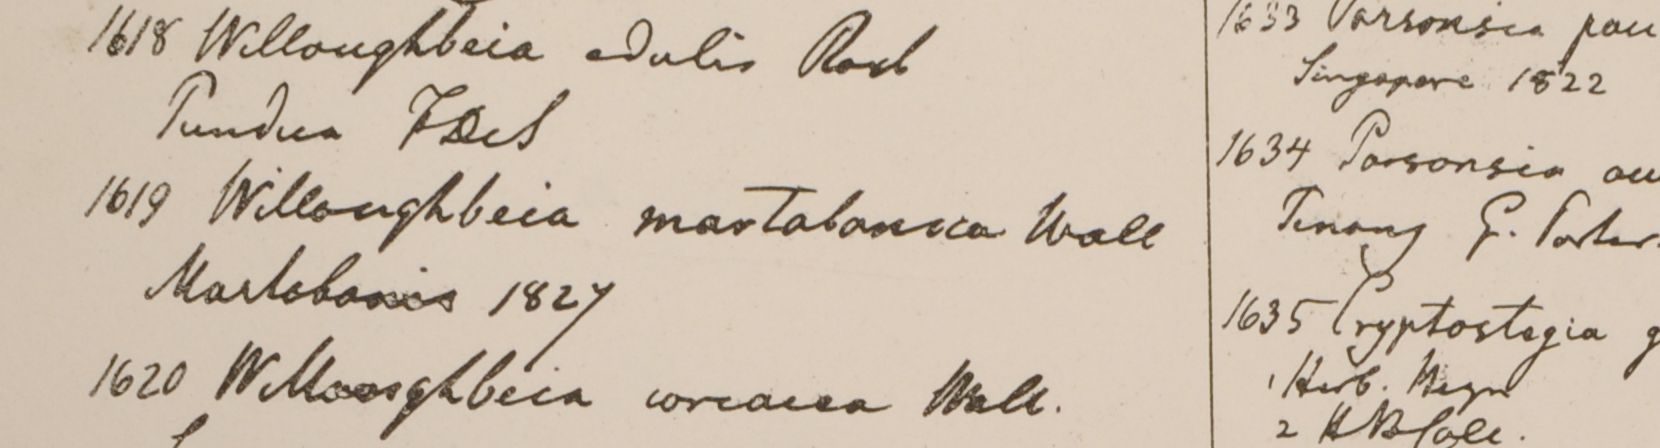 1618 Willoughbeia edulis Roxb
Pundua FDeS
1619 Willoughbeia martabanica Wall
Martabania 1827
1620 Willoughbeia coriacea Wall.
1633 Parsonsia pau
Singapore 1822
1634 Parsonsia
Penang G. Porter.
1635 Cryptostegia g
1 Herb. Heyn
2 HB Calc.